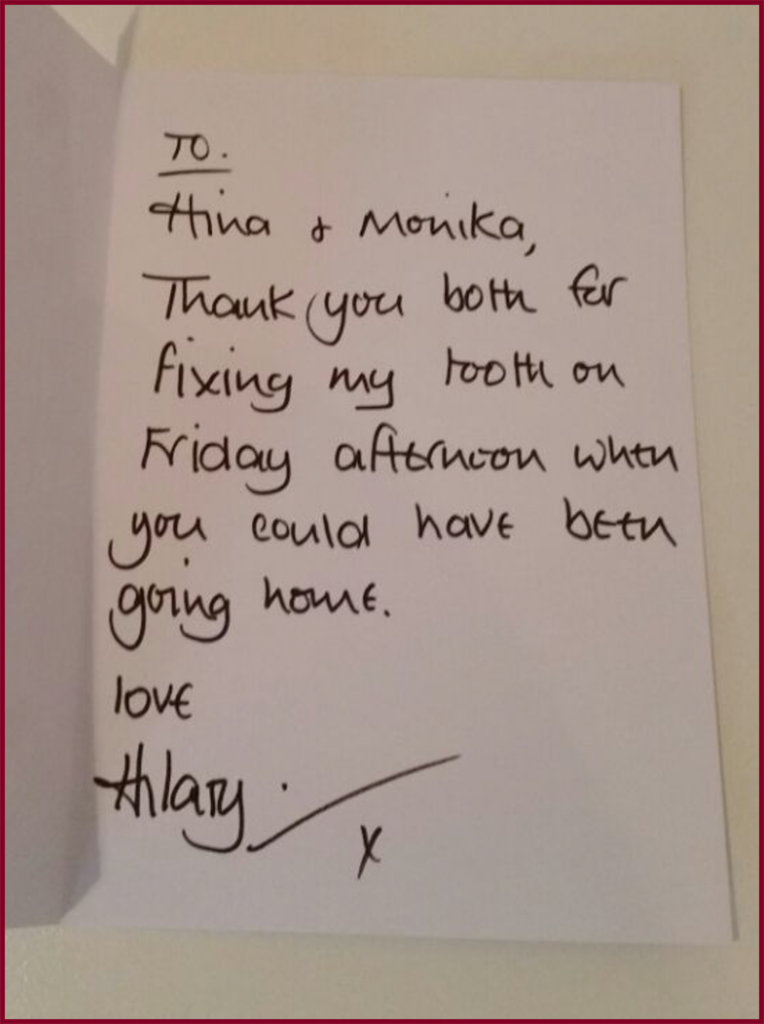 TO.
Hina & Monika,
Thank you both for
fixing my tooth on
Friday afternoon when
you could have been
going home.
love
Hilary.
x